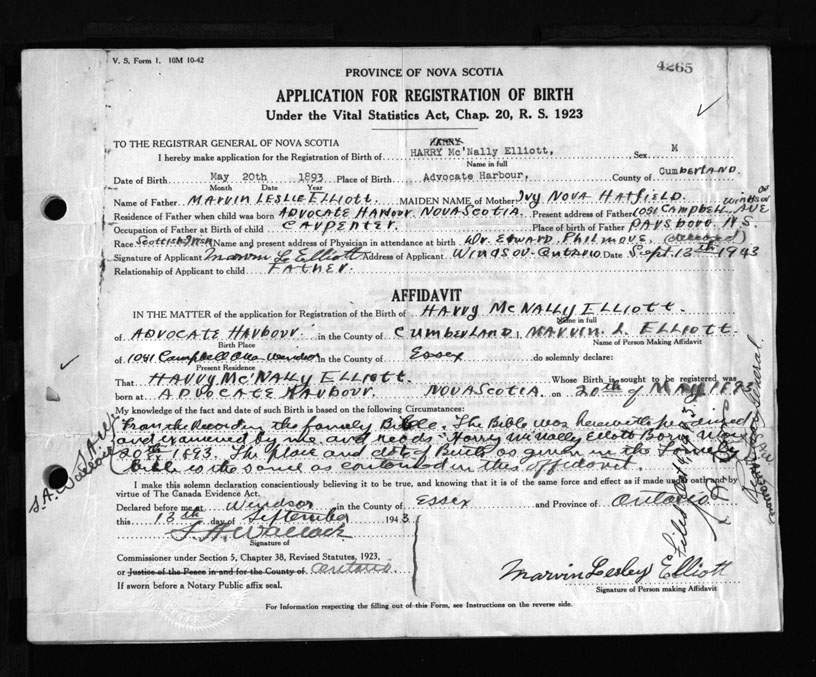 V. S. Form 1. 10M 10-42
4265
PROVINCE OF NOVA SCOTIA
APPLICATION FOR REGISTRATION OF BIRTH
Under the Vital Statistics Act, Chap. 20, R. S. 1923
TO THE REGISTRAR GENERAL OF NOVA SCOTIA
I hereby make application for the Registration of Birth of HARRY Mc'Nally Elliott, Sex M
Name in full
Date of Birth May 20th 1893 Place of Birth Advocate Harbour, County of Cumberland.
Month Date Year
Name of Father Marvin Leslie Elliott. MAIDEN NAME of Mother Ivy Nova Hatfield.
Residence of Father when child was born Advocate Harbour Nova Scotia. Present address of Father 1091 Campbell Ave Windsor
Occupation of Father at Birth of child Carpenter. Place of birth of Father Parsboro N.S
Race Scotch & Irish (Name and present address of Physician in attendance at birth Dr. Edward Philmore,
Signature of Applicant Marvin L Elliott Address of Applicant Windsor-Ontario Date Sept. 13th 1943
Relationship of Applicant to child Father.
AFFIDAVIT
IN THE MATTER of the application for Registration of the Birth of Harry McNally Elliott.
Name in full
of Advocate Harbour. in the County of Cumberland I, Marvin. L. Elliott.
Birth Place Name of Person Making Affidavit
of 1091 Campbell Ave Windsor in the County of Essex do solemnly declare:
Present Residence
That Harry Mc'Nally Elliott. Whose Birth is sought to be registered was
born at Advocate Harbour. Nova Scotia. on 20th of May 1893
My knowledge of the fact and date of such Birth is based on the following Circumstances:
From the Record in the family Bible. The Bible was herewith produced
and examined by me and reads "Harry McNally Elliott Born May
20th 1893. The place and date of Birth as given in the Family
Bible is the same as contained in this affidavit.
S.A.W.
S.A. Wallock
I make this solemn declaration conscientiously believing it to be true, and knowing that it is of the same force and effect as if made under oath and by
virtue of The Canada Evidence Act.
Declared before me at Windsor in the County of Essex and Province of Ontario
this 13th day of September 1943
S. A. Wallock
Signature of
Commissioner under Section 5, Chapter 38, Revised Statutes, 1923,
or Justice of the Peace in and for the County of Ontario.
If sworn before a Notary Public affix seal.
Marvin Lesley Elliott
Signature of Person making Affidavit
For Information respecting the filling out of this Form, see Instructions on the reverse side.
Filed
General